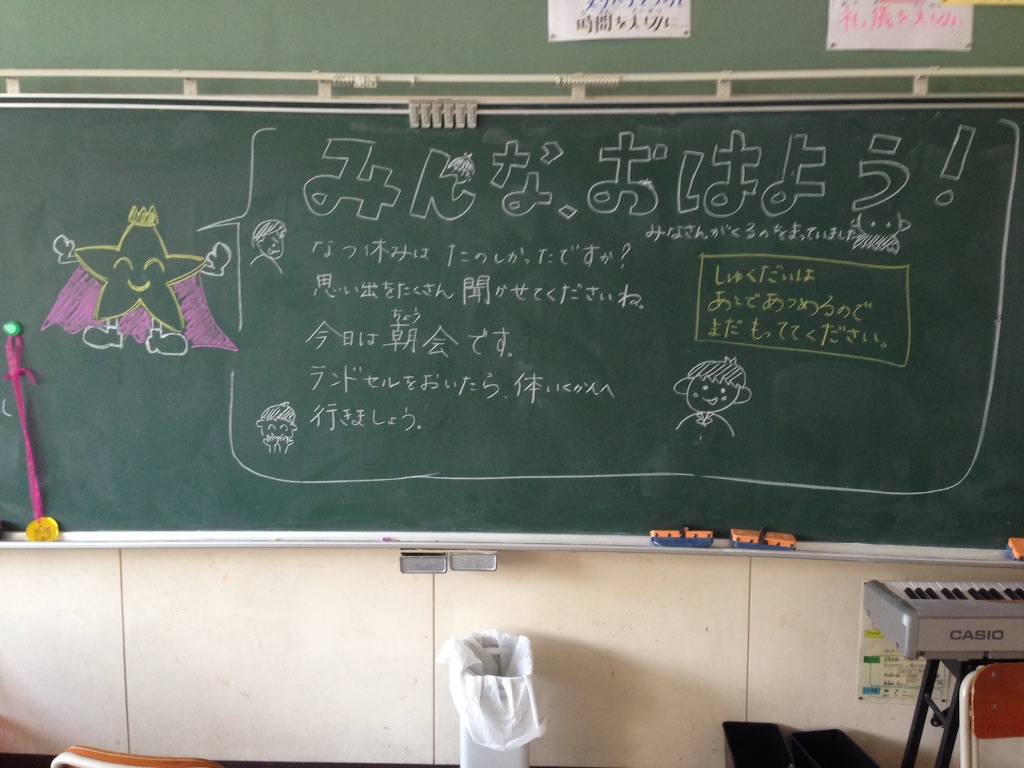 時間を大切に
礼儀を大切に
みんな、おはよう!
みなさんがくるのをまっていました
なつ休みは たのしかったですか?
思い出をたくさん 聞かせてくださいね。
ちょう
今日は 朝会です。
ランドセルをおいたら、体いくかんへ
行きましょう。
しゅくだいは
あとであつめるので
まだ もっててください。
CASIO